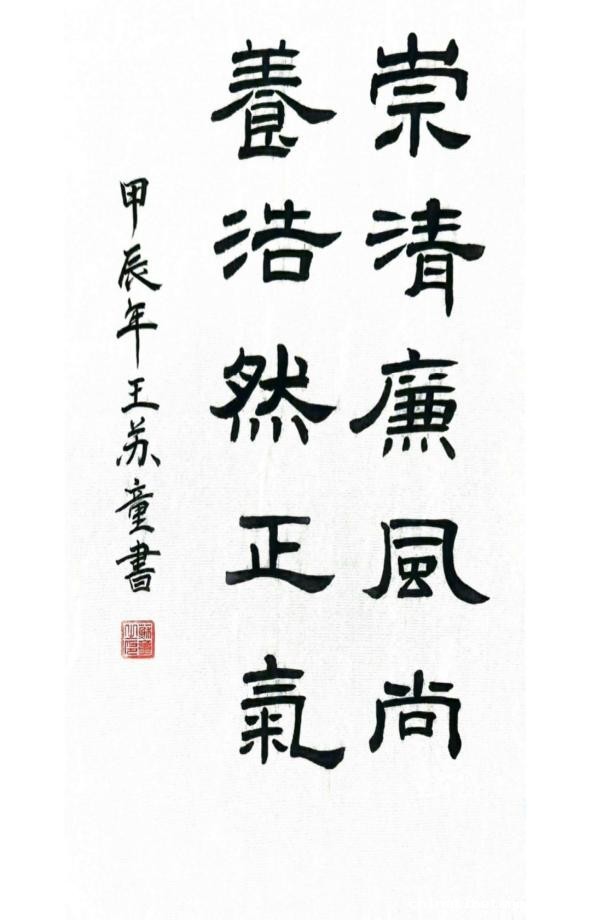 崇清廉風尚
養浩然正氣
甲辰年王苏童書